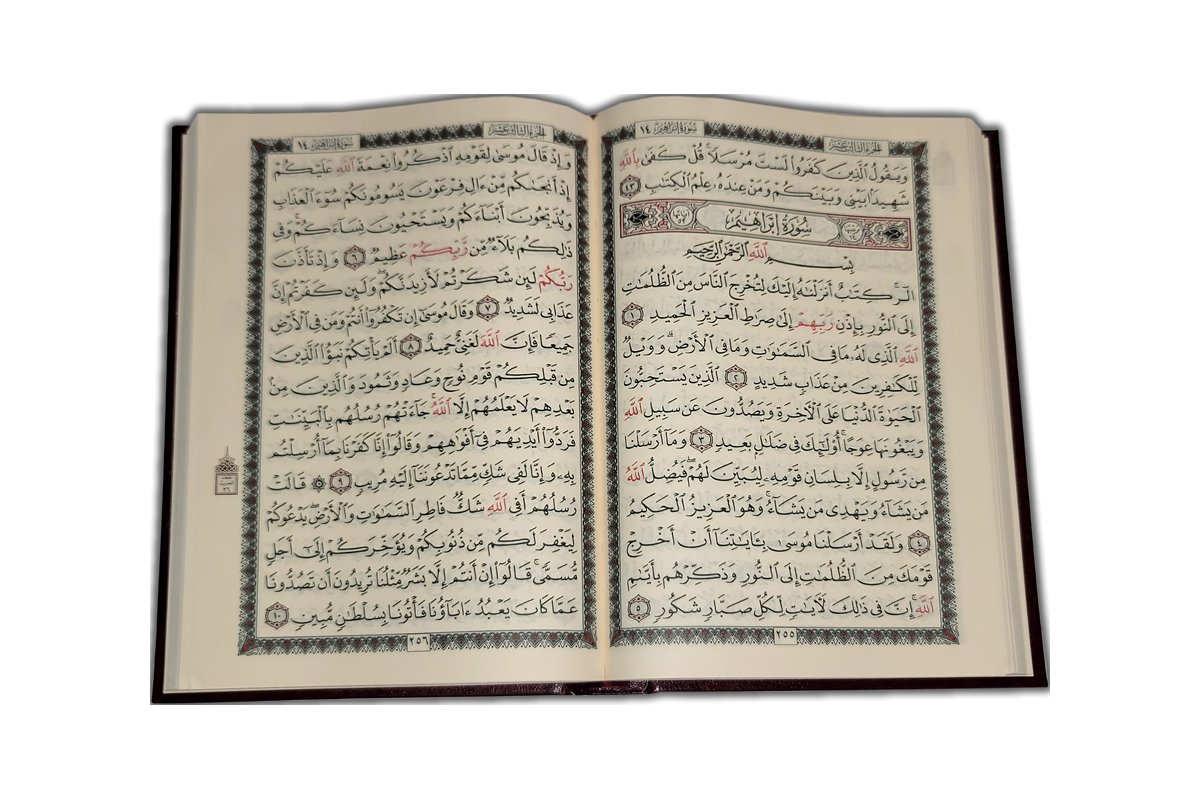 الجُزءُ الثَّالِثَ عَشَرَ سُورَةُ إِبْرَاهِيم ١٤
وَيَقُولُ ٱلَّذِينَ كَفَرُوا۟ لَسْتَ مُرْسَلًاۚ قُلْ كَفَىٰ بِٱللَّهِ
شَهِيدًۢا بَيْنِى وَبَيْنَكُمْ وَمَنْ عِندَهُۥ عِلْمُ ٱلْكِتَٰبِ ٤٣
سُورَةُ إِبْرَاهِيمَ آيَاتُهَا ٥٢
بِسْمِ ٱللَّهِ ٱلرَّحْمَٰنِ ٱلرَّحِيمِ
الٓرۚ كِتَٰبٌ أَنزَلْنَٰهُ إِلَيْكَ لِتُخْرِجَ ٱلنَّاسَ مِنَ ٱلظُّلُمَٰتِ
إِلَى ٱلنُّورِ بِإِذْنِ رَبِّهِمْ إِلَىٰ صِرَٰطِ ٱلْعَزِيزِ ٱلْحَمِيدِ ١
ٱللَّهِ ٱلَّذِى لَهُۥ مَا فِى ٱلسَّمَٰوَٰتِ وَمَا فِى ٱلْأَرْضِۗ وَوَيْلٌ
لِّلْكَٰفِرِينَ مِنْ عَذَابٍ شَدِيدٍ ٢ ٱلَّذِينَ يَسْتَحِبُّونَ
ٱلْحَيَوٰةَ ٱلدُّنْيَا عَلَى ٱلْءَاخِرَةِ وَيَصُدُّونَ عَن سَبِيلِ ٱللَّهِ
وَيَبْغُونَهَا عِوَجًاۚ أُو۟لَٰٓئِكَ فِى ضَلَٰلٍۭ بَعِيدٍ ٣ وَمَآ أَرْسَلْنَا
مِن رَّسُولٍ إِلَّا بِلِسَانِ قَوْمِهِۦ لِيُبَيِّنَ لَهُمْۖ فَيُضِلُّ ٱللَّهُ
مَن يَشَآءُ وَيَهْدِى مَن يَشَآءُۚ وَهُوَ ٱلْعَزِيزُ ٱلْحَكِيمُ
٤ وَلَقَدْ أَرْسَلْنَا مُوسَىٰ بِـَٔايَٰتِنَآ أَنْ أَخْرِجْ
قَوْمَكَ مِنَ ٱلظُّلُمَٰتِ إِلَى ٱلنُّورِ وَذَكِّرْهُم بِأَيَّىٰمِ
ٱللَّهِۚ إِنَّ فِى ذَٰلِكَ لَءَايَٰتٍ لِّكُلِّ صَبَّارٍ شَكُورٍ ٥
٢٥٥
الجُزءُ الثَّالِثَ عَشَرَ سُورَةُ إِبْرَاهِيم ١٤
وَإِذْ قَالَ مُوسَىٰ لِقَوْمِهِ ٱذْكُرُوا۟ نِعْمَةَ ٱللَّهِ عَلَيْكُمْ
إِذْ أَنجَىٰكُم مِّنْ ءَالِ فِرْعَوْنَ يَسُومُونَكُمْ سُوٓءَ ٱلْعَذَابِ
وَيُذَبِّحُونَ أَبْنَآءَكُمْ وَيَسْتَحْيُونَ نِسَآءَكُمْۚ وَفِى
ذَٰلِكُم بَلَآءٌ مِّن رَّبِّكُمْ عَظِيمٌ ٦ وَإِذْ تَأَذَّنَ
رَبُّكُمْ لَئِن شَكَرْتُمْ لَأَزِيدَنَّكُمْۖ وَلَئِن كَفَرْتُمْ إِنَّ
عَذَابِى لَشَدِيدٌ ٧ وَقَالَ مُوسَىٰٓ إِن تَكْفُرُوٓا۟ أَنتُمْ وَمَن فِى ٱلْأَرْضِ
جَمِيعًا فَإِنَّ ٱللَّهَ لَغَنِىٌّ حَمِيدٌ ٨ أَلَمْ يَأْتِكُمْ نَبَؤُا۟ ٱلَّذِينَ
مِن قَبْلِكُمْ قَوْمِ نُوحٍ وَعَادٍ وَثَمُودَ وَٱلَّذِينَ مِنۢ
بَعْدِهِمْ لَا يَعْلَمُهُمْ إِلَّا ٱللَّهُۚ جَآءَتْهُمْ رُسُلُهُم بِٱلْبَيِّنَٰتِ
فَرَدُّوٓا۟ أَيْدِيَهُمْ فِىٓ أَفْوَٰهِهِمْ وَقَالُوٓا۟ إِنَّا كَفَرْنَا بِمَآ أُرْسِلْتُم
بِهِۦ وَإِنَّا لَفِى شَكٍّ مِّمَّا تَدْعُونَنَآ إِلَيْهِ مُرِيبٍ ٩ ۞ قَالَتْ
رُسُلُهُمْ أَفِى ٱللَّهِ شَكٌّ فَاطِرِ ٱلسَّمَٰوَٰتِ وَٱلْأَرْضِۖ يَدْعُوكُمْ
لِيَغْفِرَ لَكُم مِّن ذُنُوبِكُمْ وَيُؤَخِّرَكُمْ إِلَىٰٓ أَجَلٍ
مُّسَمًّىۚ قَالُوٓا۟ إِنْ أَنتُمْ إِلَّا بَشَرٌ مِّثْلُنَا تُرِيدُونَ أَن تَصُدُّونَا
عَمَّا كَانَ يَعْبُدُ ءَابَآؤُنَا فَأْتُونَا بِسُلْطَٰنٍ مُّبِينٍ ١٠
نصف
الحزب
٢٦
٢٥٦